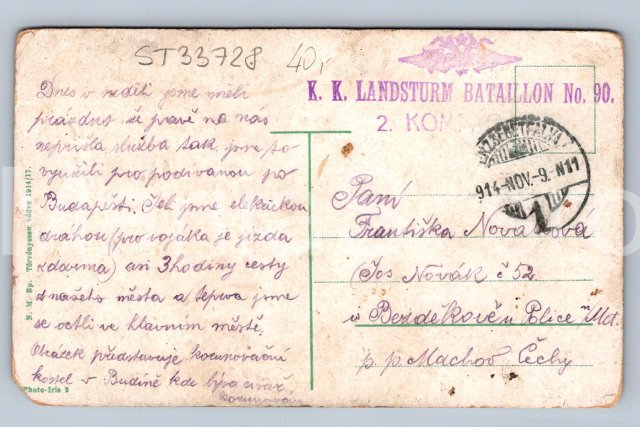 ST33728
40,-
K. K. LANDSTURM BATAILLON No. 90.
2. KOM
914-NOV.-9. N11
1
Dnes v neděli jsme měli
prázdno že právě na nás
nepřišla služba tak jsme to
využili pro podívanou po
Budapešti. Jeli jsme elektrickou
drahou (pro vojáka je jízda
zdarma) asi 3 hodiny cesty
z našeho města a teprva jsme
se octli ve hlavním městě.
Obrázek představuje korunovační
kostel v Budíně kde býva císař
korunován
Paní
Františka Nováková
Jos Novák č 52
v Bezděkově u Police n Met.
p. p. Machov Čechy
N. M. Bp. Törvényesen védve 1914/17.
Photo-Iris 2